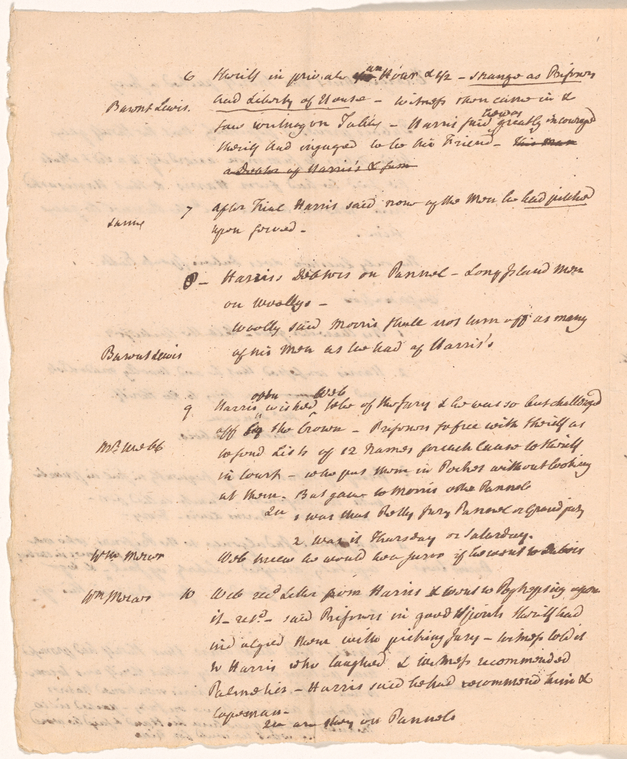 6 Sheriff in private an Hour & 1/2 – strange as Prisoners
Barnt Lewis. had Liberty of House – Witness then came in &
saw writing on Table – Harris said he was greatly incouraged
Sheriff had ingaged to be his Friend – This man
a Debtor of Harris's & from
Same 7 after Trial Harris said none of the Men he had pitched
upon served –
8 – Harris's Debtors on Pannel – Long Island Men
on Woollys –
Woolly said Morris shall not turn off as many
Barnt Lewis of his Men as he had of Harris's
9 Harris often wished Web to be of the Jury & he was so but challenged
off by the Crown – Prisoners so free with Sheriff as
Mr. Webb to send Lists of 12 Names for each Cause to Sheriff
in Court – who put them in Pocket without looking
at them. But gave to Morris other Pannels
Qu 1 was this Petty Jury Pannel or Grand jury
2 was it Thursday or Saturday.
Wm. Mears Web knew he would be a juror if he went to
Wm. Mears 10 Web recd. Letter from Harris & went to
it – – said Prisoners in good Spirits Sheriff had
indulged them with picking Jury – witness told it
to Harris who laughed & witness recommended
Palmelier – Harris said he had recommend him &
Capeman –
Qu are they on Pannels